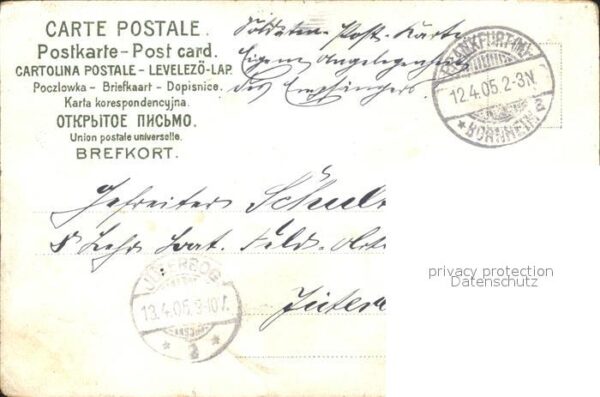 CARTE POSTALE.
Postkarte – Post card.
CARTOLINA POSTALE – LEVELEZÖ-LAP.
Poczlowka – Briefkaart – Dopisnice.
Karta korespondencyjna.
ОТКРЫТОЕ ПИСЬМО.
Union postale universelle.
BREFKORT.
Soldaten-Post-Karte
Eigene Angelegenheit
des Empfängers
FRANKFURT (M)
12.4.05.2-3N.
* BORNHEIM 2
Gefreiter Schul
Lehr Feld
JÜTERBOG
13.4.05.9-10V.
* a *
Jüter
privacy protection
Datenschutz